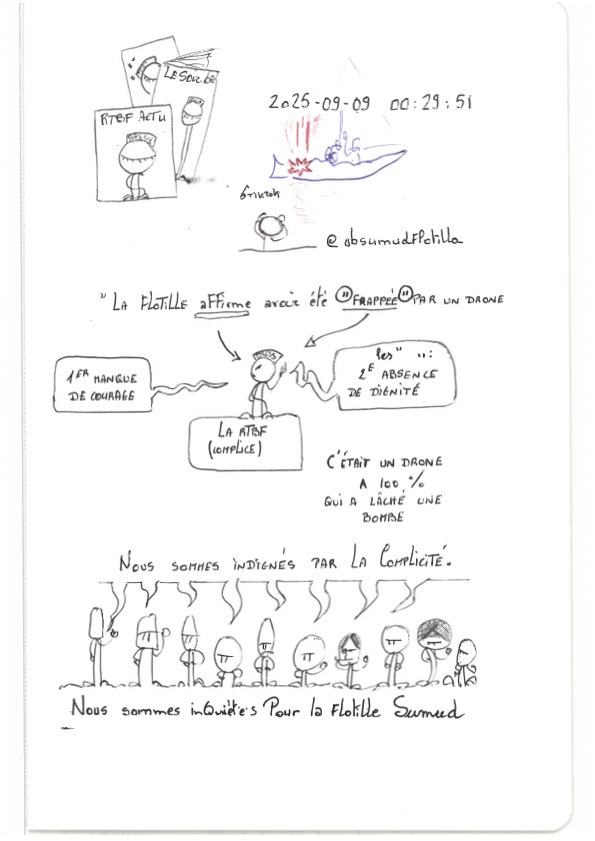 LE SOIR.be
RTBF ACTU
2025-09-09 00:29:51
@obsumudFlotilla
"LA FLOTILLE affirme avoir été "FRAPPÉE" PAR UN DRONE
1ER MANQUE
DE COURAGE
les " ":
2E ABSENCE
DE DIGNITÉ
LA RTBF
(COMPLICE)
C'ÉTAIT UN DRONE
A 100 %
QUI A LÂCHÉ UNE
BOMBE
NOUS SOMMES INDIGNÉS PAR LA COMPLICITÉ.
Nous sommes inQuiétés Pour la Flotille Sumud